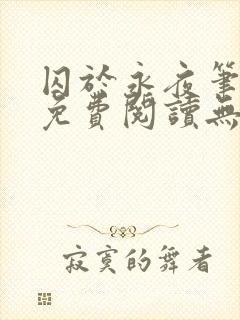 囚於永夜筆
免費閱讀無
寂寞的舞者